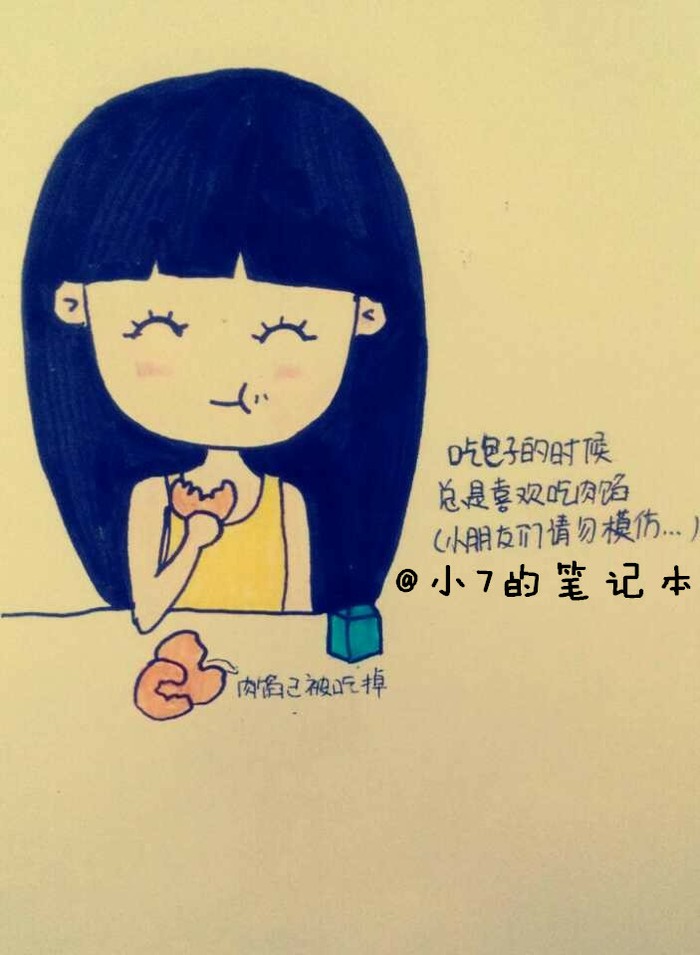 吃包子的时候
总是喜欢吃肉馅
(小朋友们请勿模仿...)
@小7的笔记本
肉馅已被吃掉